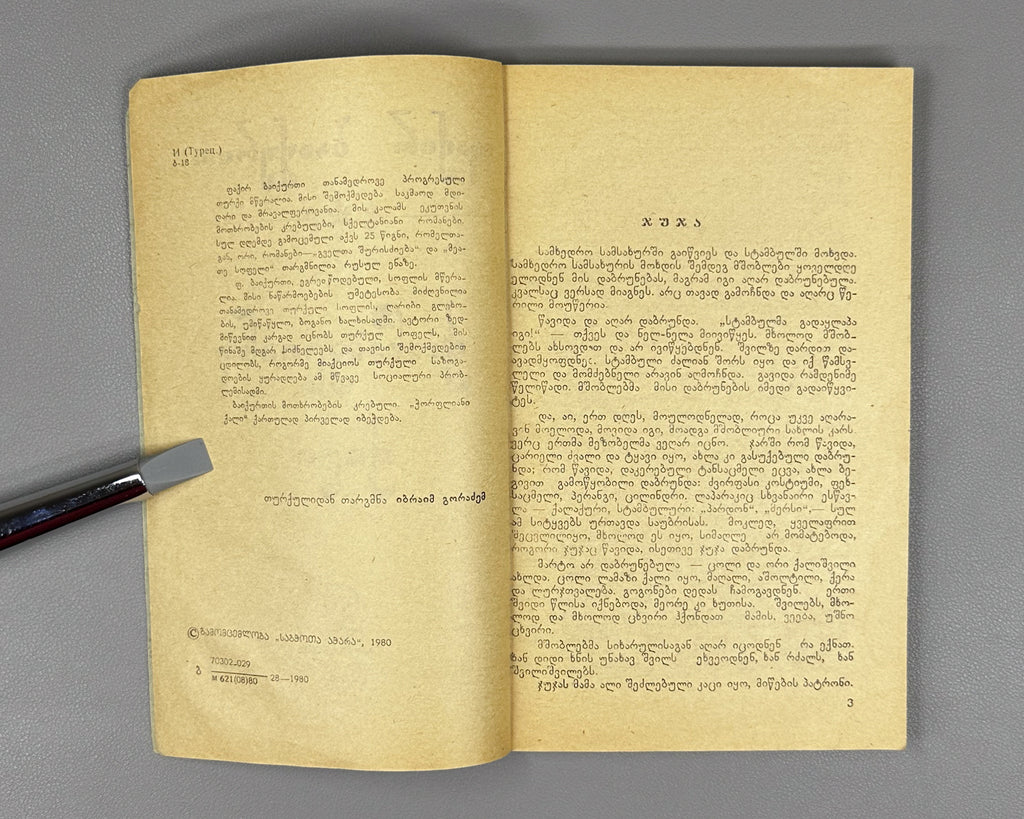 И (Турец.)
ბ-18
ფაქირ ბაიქურთი თანამედროვე პროგრესული
თურქი მწერალია. მისი შემოქმედება საკმაოდ მდი-
დარი და მრავალფეროვანია. მის კალამს ეკუთვნის
მოთხრობების კრებულები, სქელტანიანი რომანები.
სულ დღემდე გამოცემული აქვს 25 წიგნი, რომელთა-
გან, ორი, რომანები—„გველთა შურისძიება“ და „მეა-
თე სოფელი“ თარგმნილია რუსულ ენაზე.
ფ. ბაიქურთი, ეგრეწოდებული, სოფლის მწერა-
ლია. მისი ნაწარმოებების უმეტესობა მიძღვნილია
თანამედროვე თურქული სოფლის, ღარიბი გლეხო-
ბის, უმიწაწყლო, ბოგანო ხალხისადმი. ავტორი ზედ-
მიწევნით კარგად იცნობს თურქულ სოფელს, მის
წინაშე მდგარ სიძნელეებს და თავისი შემოქმედებით
ცდილობს, როგორმე მიაქციოს თურქული საზოგა-
დოების ყურადღება ამ მწვავე სოციალური პრობ-
ლემისადმი.
ბაიქურთის მოთხრობების კრებული „ჭორფლიანი
ქალი“ ქართულად პირველად იბეჭდება.
თურქულიდან თარგმნა იბრაიმ გორაძემ
© გამომცემლობა „საბჭოთა აჭარა“, 1980
70302—029
ბ ————— 28—1980
М 621(08)80
ჯუჯა
სამხედრო სამსახურში გაიწვიეს და სტამბულში მოხვდა.
სამხედრო სამსახურის მოხდის შემდეგ მშობლები ყოველდღე
ელოდნენ მის დაბრუნებას, მაგრამ იგი აღარ დაბრუნებულა.
კვალსაც ვერსად მიაგნეს. არც თავად გამოჩნდა და აღარც წე-
რილი მოუწერია.
წავიდა და აღარ დაბრუნდა. „სტამბულმა გადაყლაპა
იგი!“ — თქვეს და ნელნელა მიივიწყეს. მხოლოდ მშობ-
ლებს ახსოვდათ და არ ივიწყებდნენ. შვილზე დარდით და-
ავადმყოფდნენ. სტამბული ძალიან შორს იყო და იქ წამსვ-
ლელი და მომძებნელი არავინ აღმოჩნდა. გავიდა რამდენიმე
წელიწადი. მშობლებმა მისი დაბრუნების იმედი გადაიწყვი-
ტეს.
და, აი, ერთ დღეს, მოულოდნელად, როცა უკვე აღარა-
ვინ მოელოდა, მოვიდა იგი, მოადგა მშობლიური სახლის კარს.
ვერც ერთმა მეზობელმა ვეღარ იცნო. ჯარში რომ წავიდა,
ცარიელი ძვალი და ტყავი იყო, ახლა კი გასუქებული დაბრუ-
ნდა; რომ წავიდა, დაკერებული ტანსაცმელი ეცვა, ახლა ბე-
გივით გამოწყობილი დაბრუნდა: ძვირფასი კოსტიუმი, ფეხ-
საცმელი, პერანგი, ცილინდრი. ლაპარაკიც სხვანაირი ესწავ-
ლა — ქალაქური, სტამბულური: „პარდონ“, „მერსი“,— სულ
ამ სიტყვებს ურთავდა საუბრისას. მოკლედ, ყველაფრით
შეცვლილიყო, მხოლოდ ეს იყო, სიმაღლე არ მომატებოდა,
როგორი ჯუჯაც წავიდა, ისეთივე ჯუჯა დაბრუნდა.
მარტო არ დაბრუნებულა — ცოლი და ორი ქალიშვილი
ახლდა. ცოლი ლამაზი ქალი იყო, მაღალი, აშოლტილი, ქერა
და ლურჯთვალება. გოგონები დედას ჩამოგავდნენ. ერთი
შვიდი წლისა იქნებოდა, მეორე კი ხუთისა. შვილებს, მხო-
ლოდ და მხოლოდ ცხვირი ჰქონდათ მამის. ვეება, უშნო
ცხვირი.
მშობლებმა სიხარულისაგან აღარ იცოდნენ რა ექნათ.
ხან დიდი ხნის უნახავ შვილს ეხვეოდნენ, ხან რძალს, ხან
შვილიშვილებს.
ჯუჯას მამა ალი შეძლებული კაცი იყო, მიწების პატრონი.
3